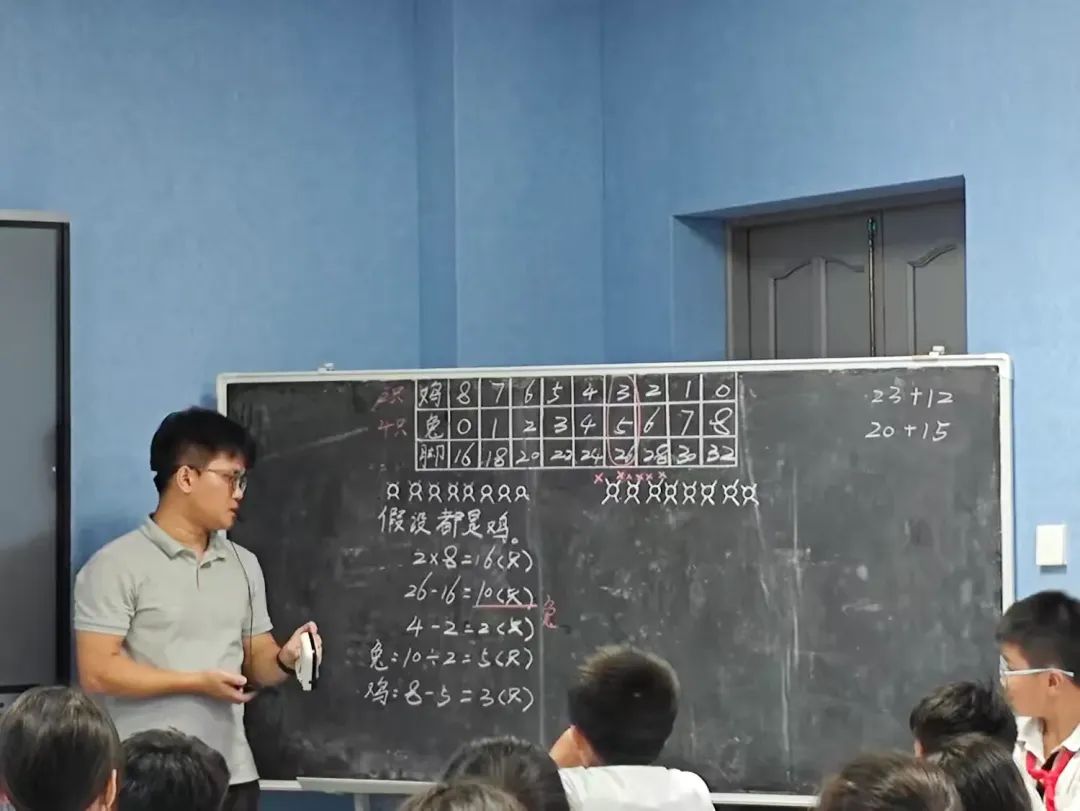 2只 鸡 8 7 6 5 4 3 2 1 0
4只 兔 0 1 2 3 4 5 6 7 8
脚 16 18 20 22 24 26 28 30 32
23+12
20+15
假设都是鸡。
2×8=16(只)
26-16=10(只) 兔
4-2=2(只)
兔:10÷2=5(只)
鸡:8-5=3(只)